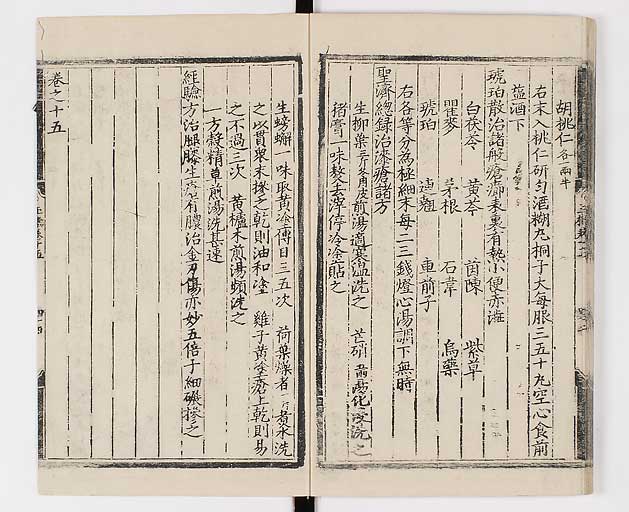 胡桃仁各一兩半
右末入桃仁研勻酒糊丸桐子大每服三五十丸空心食前
塩酒下
琥珀散治諸般瘡癤表裏有熱小便赤澁
白茯苓 黃芩 茵陳 紫草
瞿麥 茅根 石韋 烏藥
琥珀 連翹 車前子
右各等分為極細末每二三錢燈心湯調下無時
聖濟緫録治漆瘡諸方
生柳葉 煎湯適寒溫洗之 芒硝 湯化洗之
猪膏一味熬去滓停冷塗貼之
生螃蠏一味取黃塗傅日三五次 荷葉燥者一斤煮水洗
之以貫衆末摻之乾則油和塗 雞子黃塗瘡上乾則易
之不過三次 黃櫨木煎湯頻洗之
一方穀精草煎湯洗甚速
經驗方治腿膝生瘡有膿治金刃傷亦妙五倍子細碾摻之
卷之十五